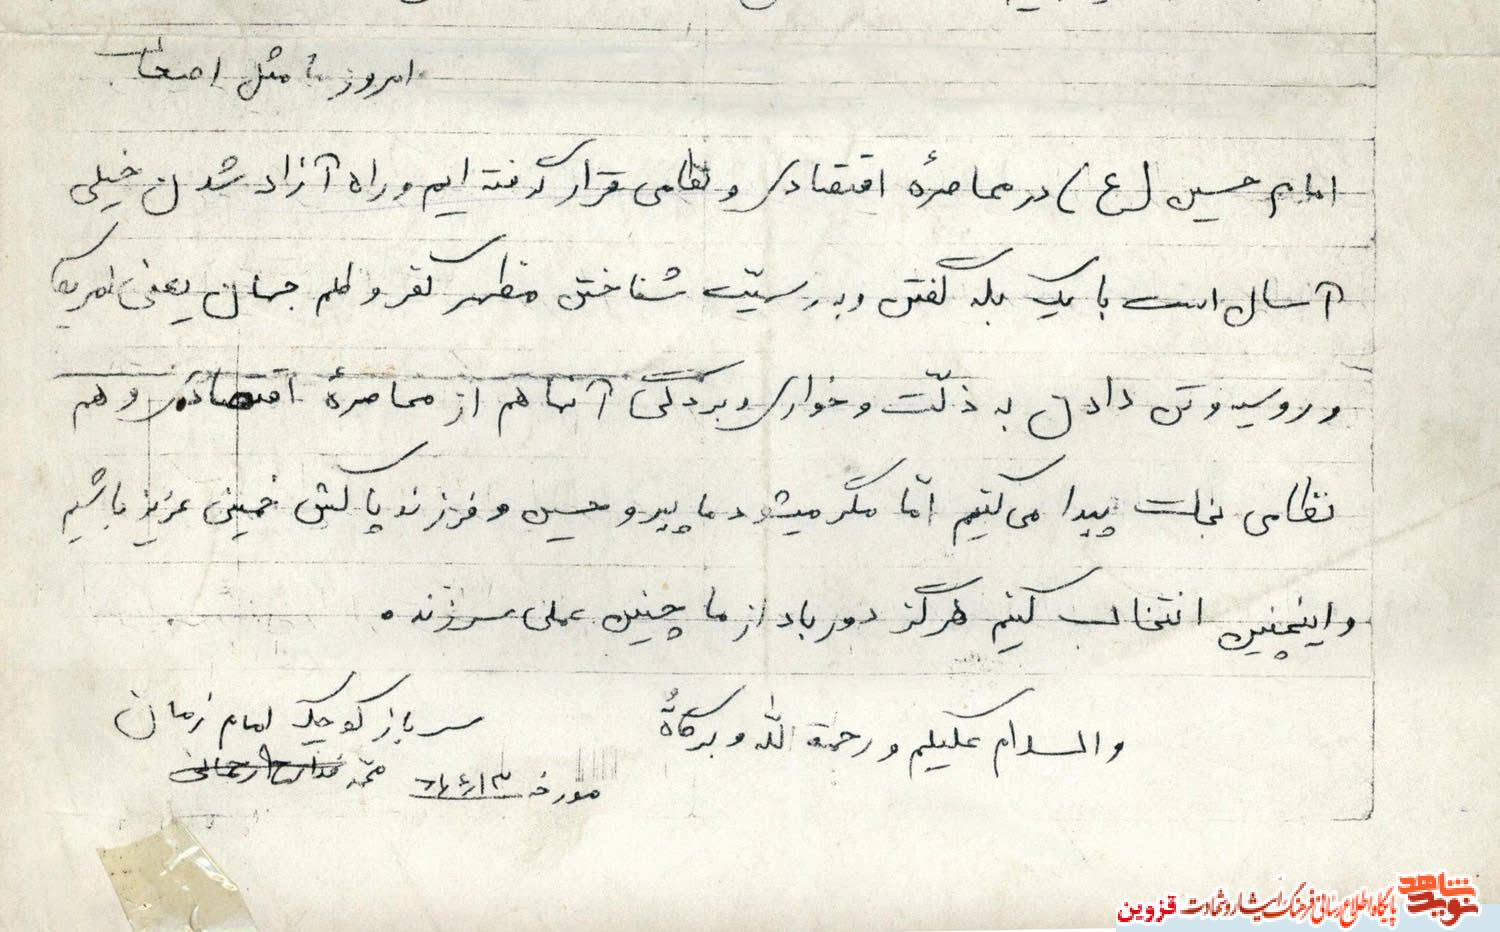 امروز ما مثل اصحاب
امام حسین (ع) در محاصرهٔ اقتصادی و نظامی قرار گرفته ایم و راه آزاد شدن خیلی
آسان است با یک بله گفتن و به رسمیّت شناختن مظهر کفر و ظلم جهان یعنی امریکا
و روسیه و تن دادن به ذلّت و خواری و بردگی آنها هم از محاصرهٔ اقتصادی و هم
نظامی نجات پیدا می کنیم امّا مگر میشود ما پیرو حسین و فرزند پاکش خمینی عزیز باشیم
و اینچنین انتخاب کنیم هرگز دور باد از ما چنین عملی سر زند.
والسلام علیکم و رحمة الله و برکاتهُ
سرباز کوچک امام زمان
محمد
مورخه
نوید شاهد پایگاه اطلاع رسانی فرهنگ ایثار و شهادت قزوین